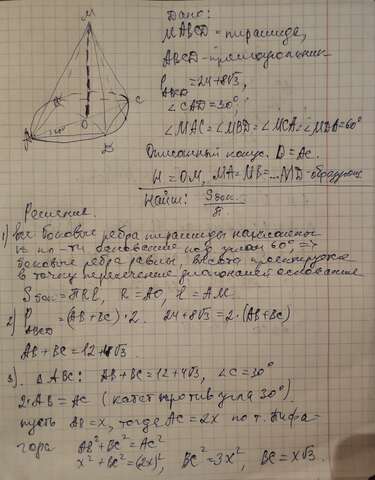 Дано:
MABCD - пирамида,
ABCD - прямоугольник
P ABCD = 24+8√3
∠CAD = 30°
∠MAC = ∠MBD = ∠MCA = ∠MDA = 60°
Описанный конус. D = AC.
H = OM, MA = MB = ... MD - образующ
Найти: Sбок./π
M
A
B
C
D
O
Решение.
1) Все боковые ребра пирамиды наклонены
к пл-ти основания под углом 60° =>
боковые ребра равны, высота проектируется
в точку пересечения диагоналей основания
Sбок = πRL, R = AO, L = AM
2) P ABCD = (AB+BC)·2. 24+8√3 = 2·(AB+BC)
AB+BC = 12+4√3.
3) ΔABC: AB+BC = 12+4√3, ∠C = 30°
2·AB = AC (катет против угла 30°)
пусть AB = x, тогда AC = 2x по т. Пифа-
гора AB² + BC² = AC²
x² + BC² = (2x)², BC² = 3x², BC = x√3.